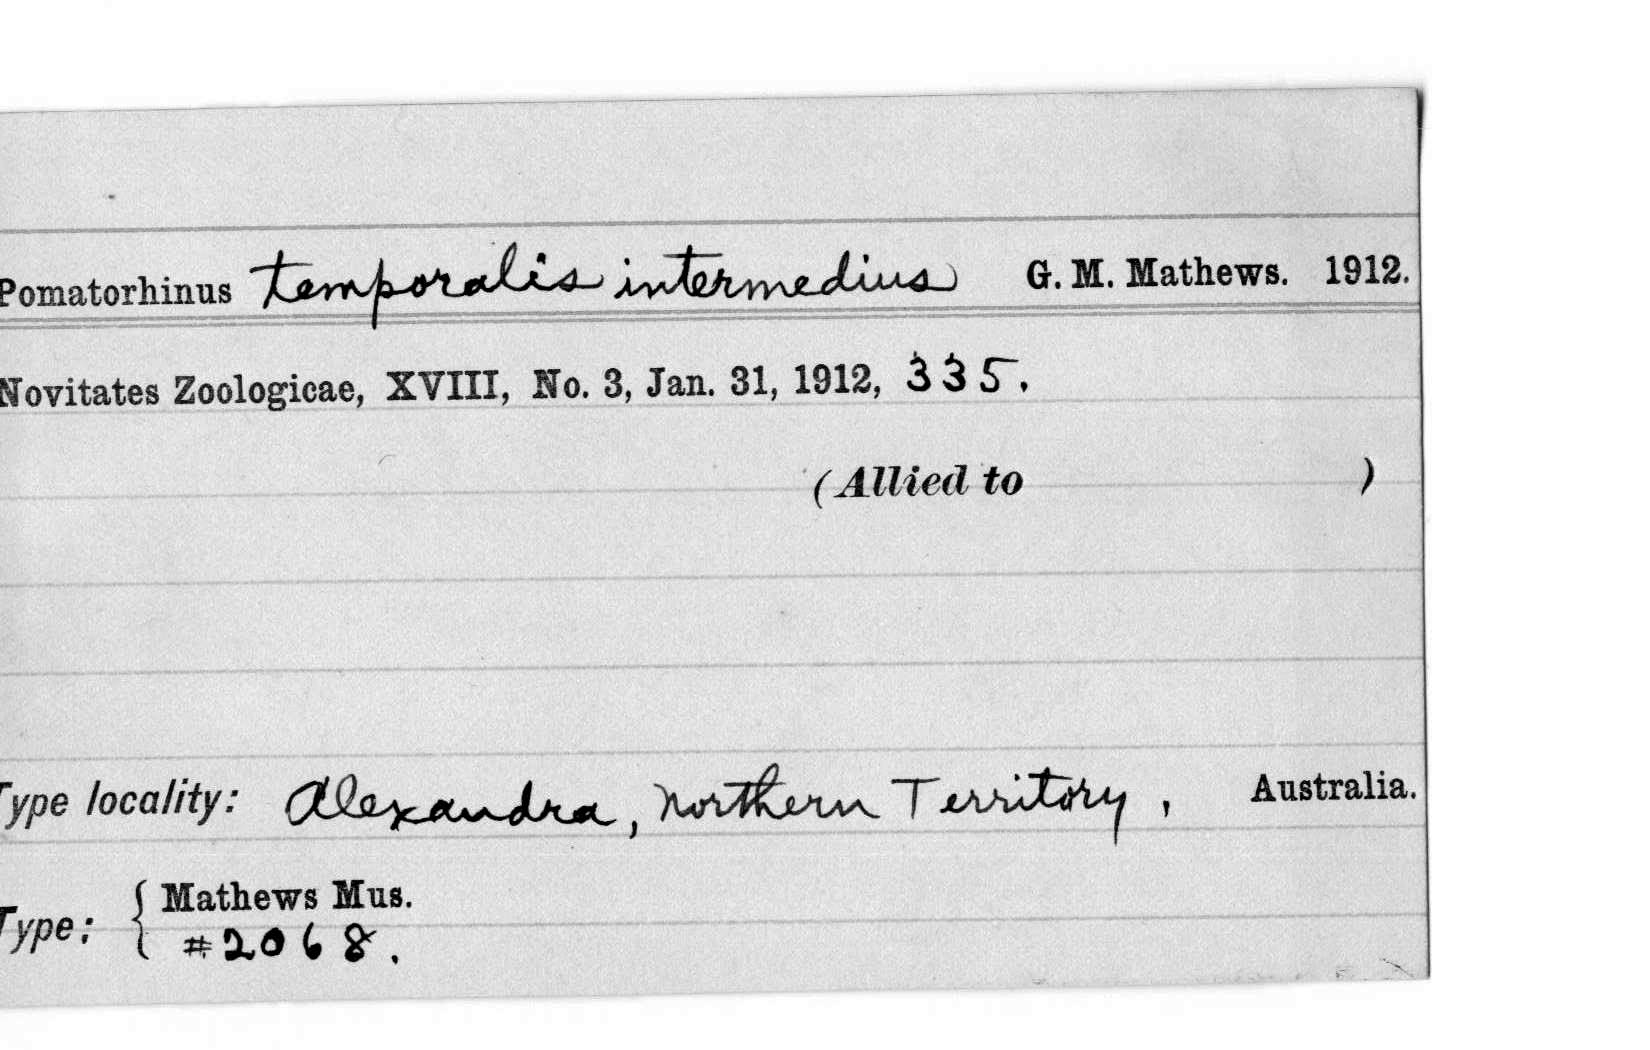 Pomatorhinus temporalis intermedius G. M. Mathews. 1912.
Novitates Zoologicae, XVIII, No. 3, Jan. 31, 1912, 335.
(Allied to )
Type locality: Alexandra, Northern Territory, Australia.
Type: { Mathews Mus.
#2068.